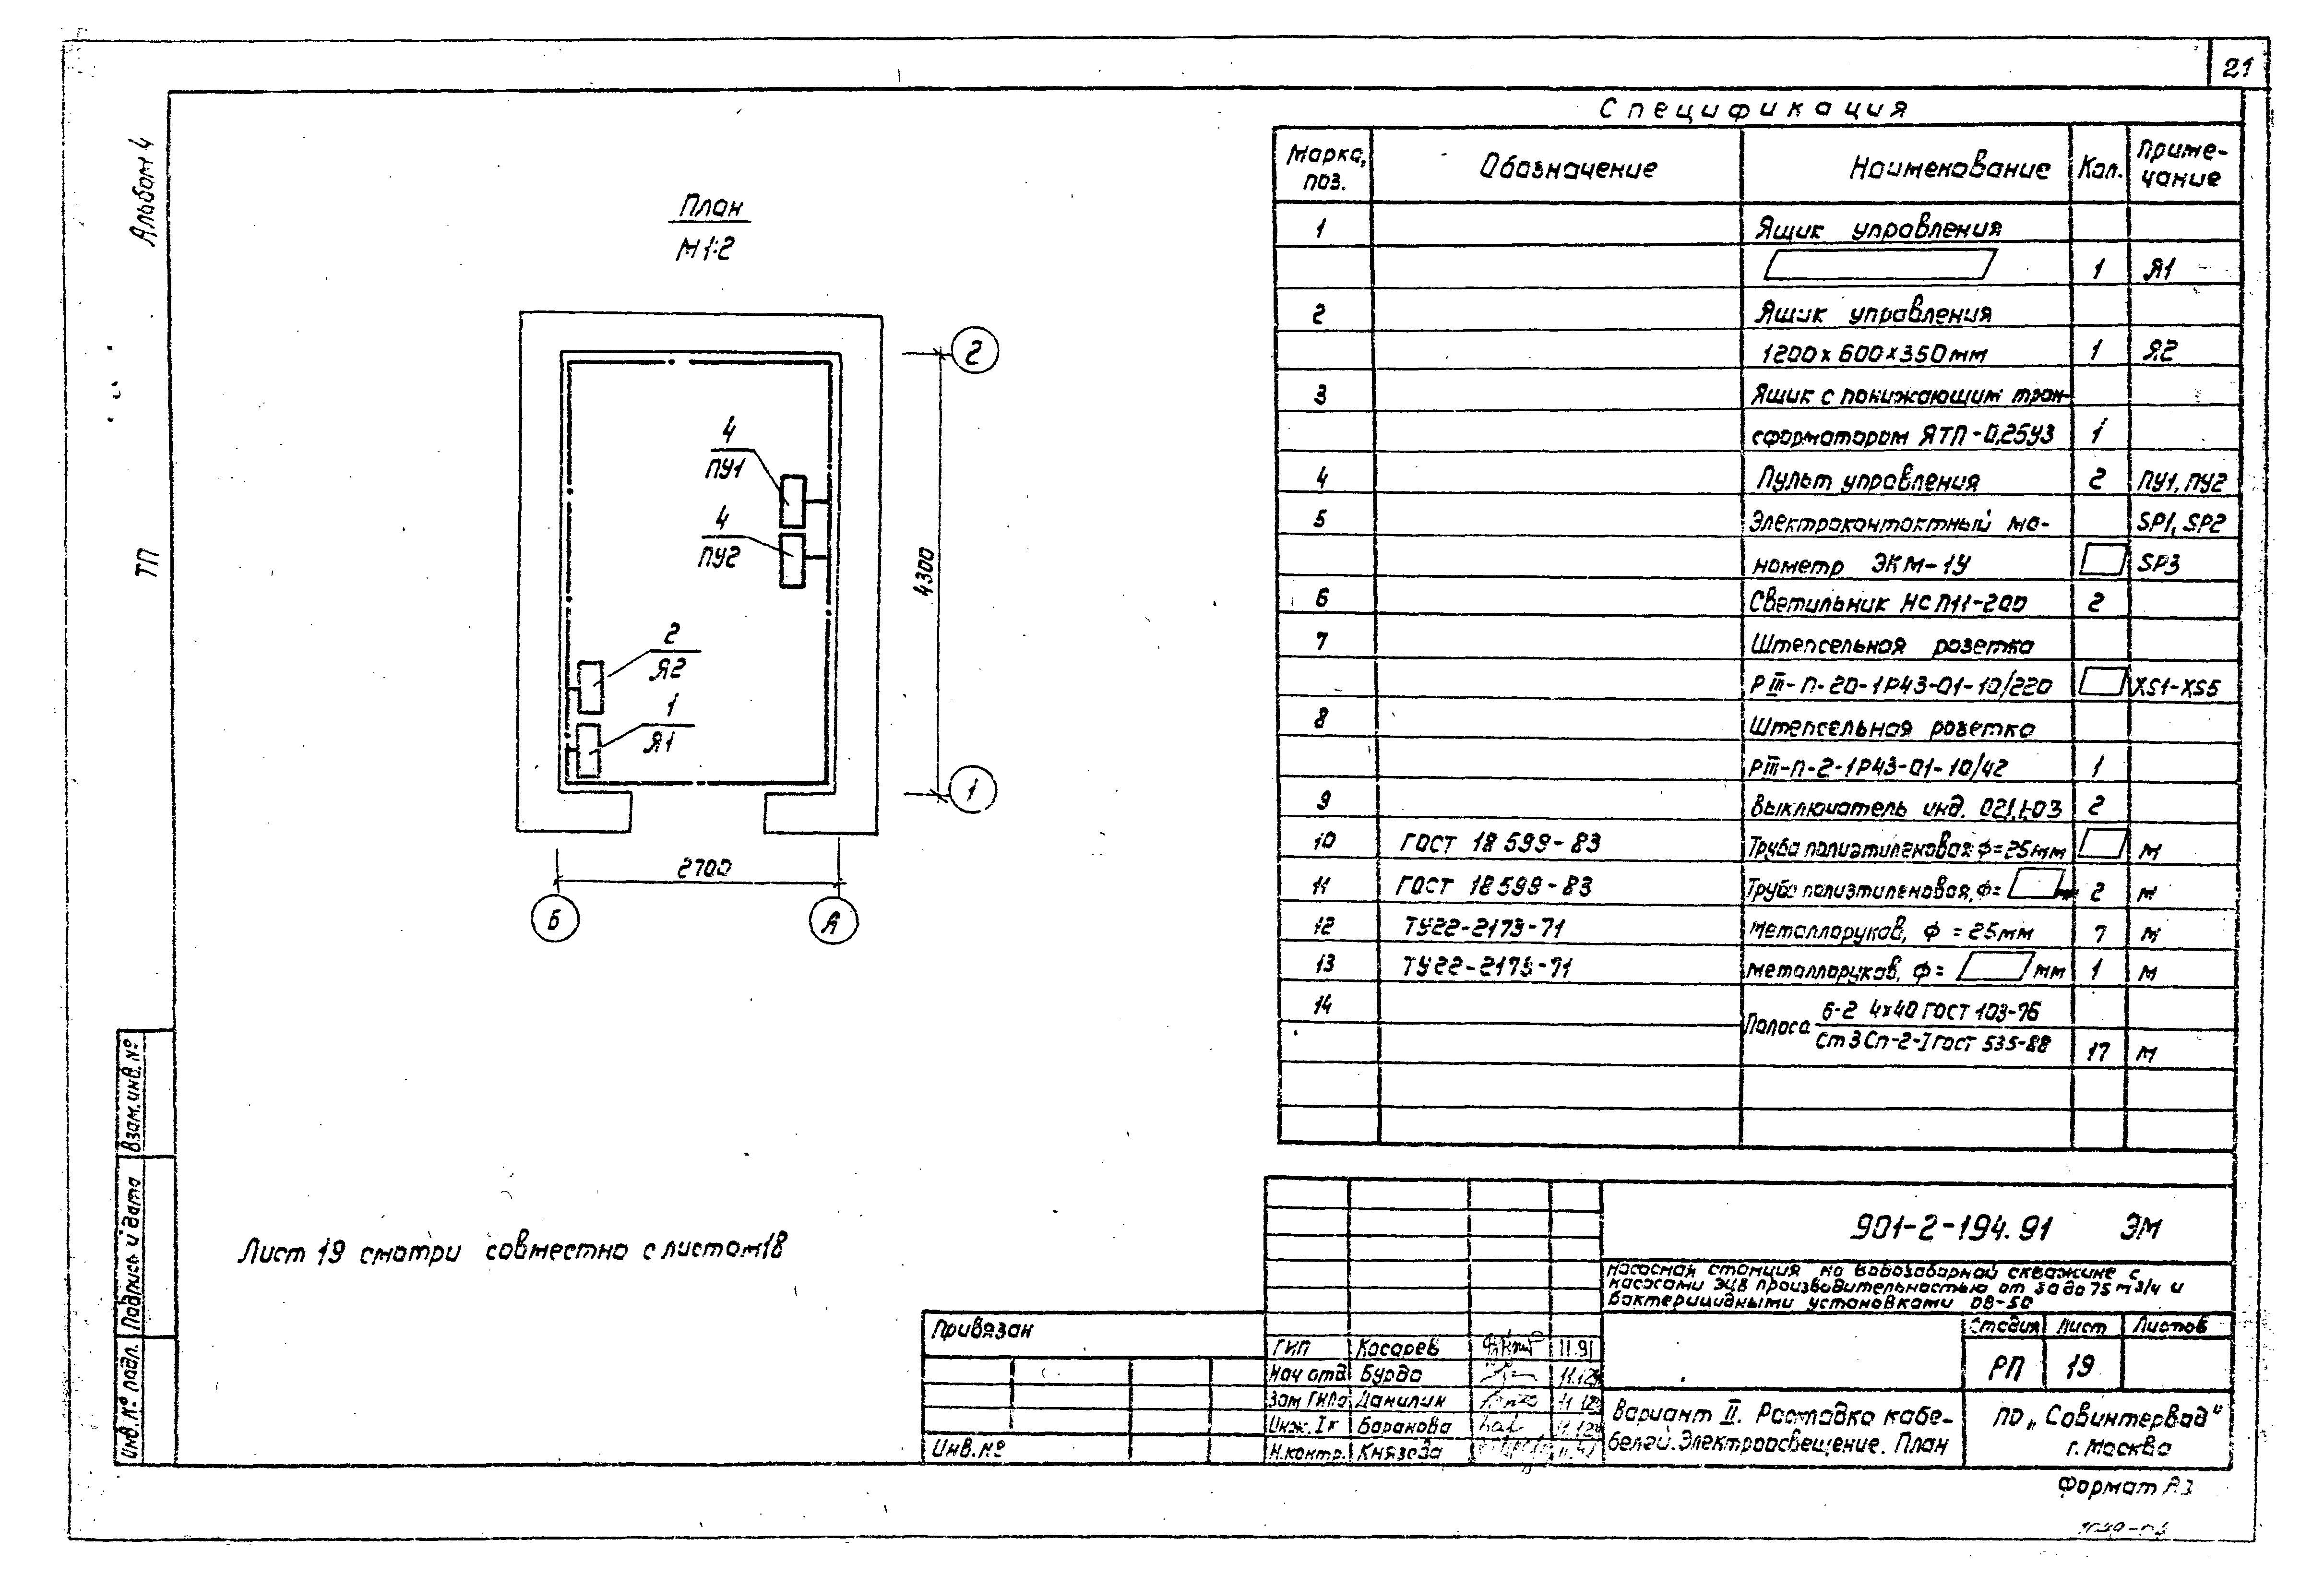 21
Альбом 4
ТП
План
М 1:2
4
ПУ1
4
ПУ2
2
Я2
1
Я1
2
4300
1
2700
Б
А
Лист 19 смотри совместно с листом 18
Спецификация
Марка, поз. Обозначение Наименование Кол. Приме-чание
1 Ящик управления
1 Я1
2 Ящик управления
1200 х 600 х 350 мм 1 Я2
3 Ящик с понижающим тран-
сформатором ЯТП-0,25У3 1
4 Пульт управления 2 ПУ1, ПУ2
5 Электроконтактный ма- SP1, SP2
нометр ЭКМ-1У SP3
6 Светильник НСП11-200 2
7 Штепсельная розетка
РШ-П-20-1Р43-01-10/220 XS1-XS5
8 Штепсельная розетка
РШ-П-2-1Р43-01-10/42 1
9 Выключатель инд. 021.1-03 2
10 ГОСТ 18 599-83 Труба полиэтиленовая ф=25мм м
11 ГОСТ 18 599-83 Труба полиэтиленовая, ф= мм 2 м
12 ТУ22-2173-71 Металлорукав, ф = 25мм 7 м
13 ТУ22-2173-71 Металлорукав, ф= мм 1 м
14 Полоса Б-2 4х40 ГОСТ 103-76
Ст 3 Сп-2-I ГОСТ 535-88 17 м
Взам. инв. №
Подпись и дата
Инв. № подл.
Привязан
Инв. №
ГИП Косарев 11.91
Нач отд Бурда
Зам ГИПа Данилин
Инж. I к Баранова
Н.контр. Князева
901-2-194.91 ЭМ
Насосная станция на водозаборной скважине с
насосами ЭЦВ производительностью от 30 до 75 м3/ч и
бактерицидными установками ОВ-50
Стадия Лист Листов
РП 19
Вариант II. Раскладка кабе-
белей. Электроосвещение. План
ПО „Совинтервод"
г. Москва
Формат А3